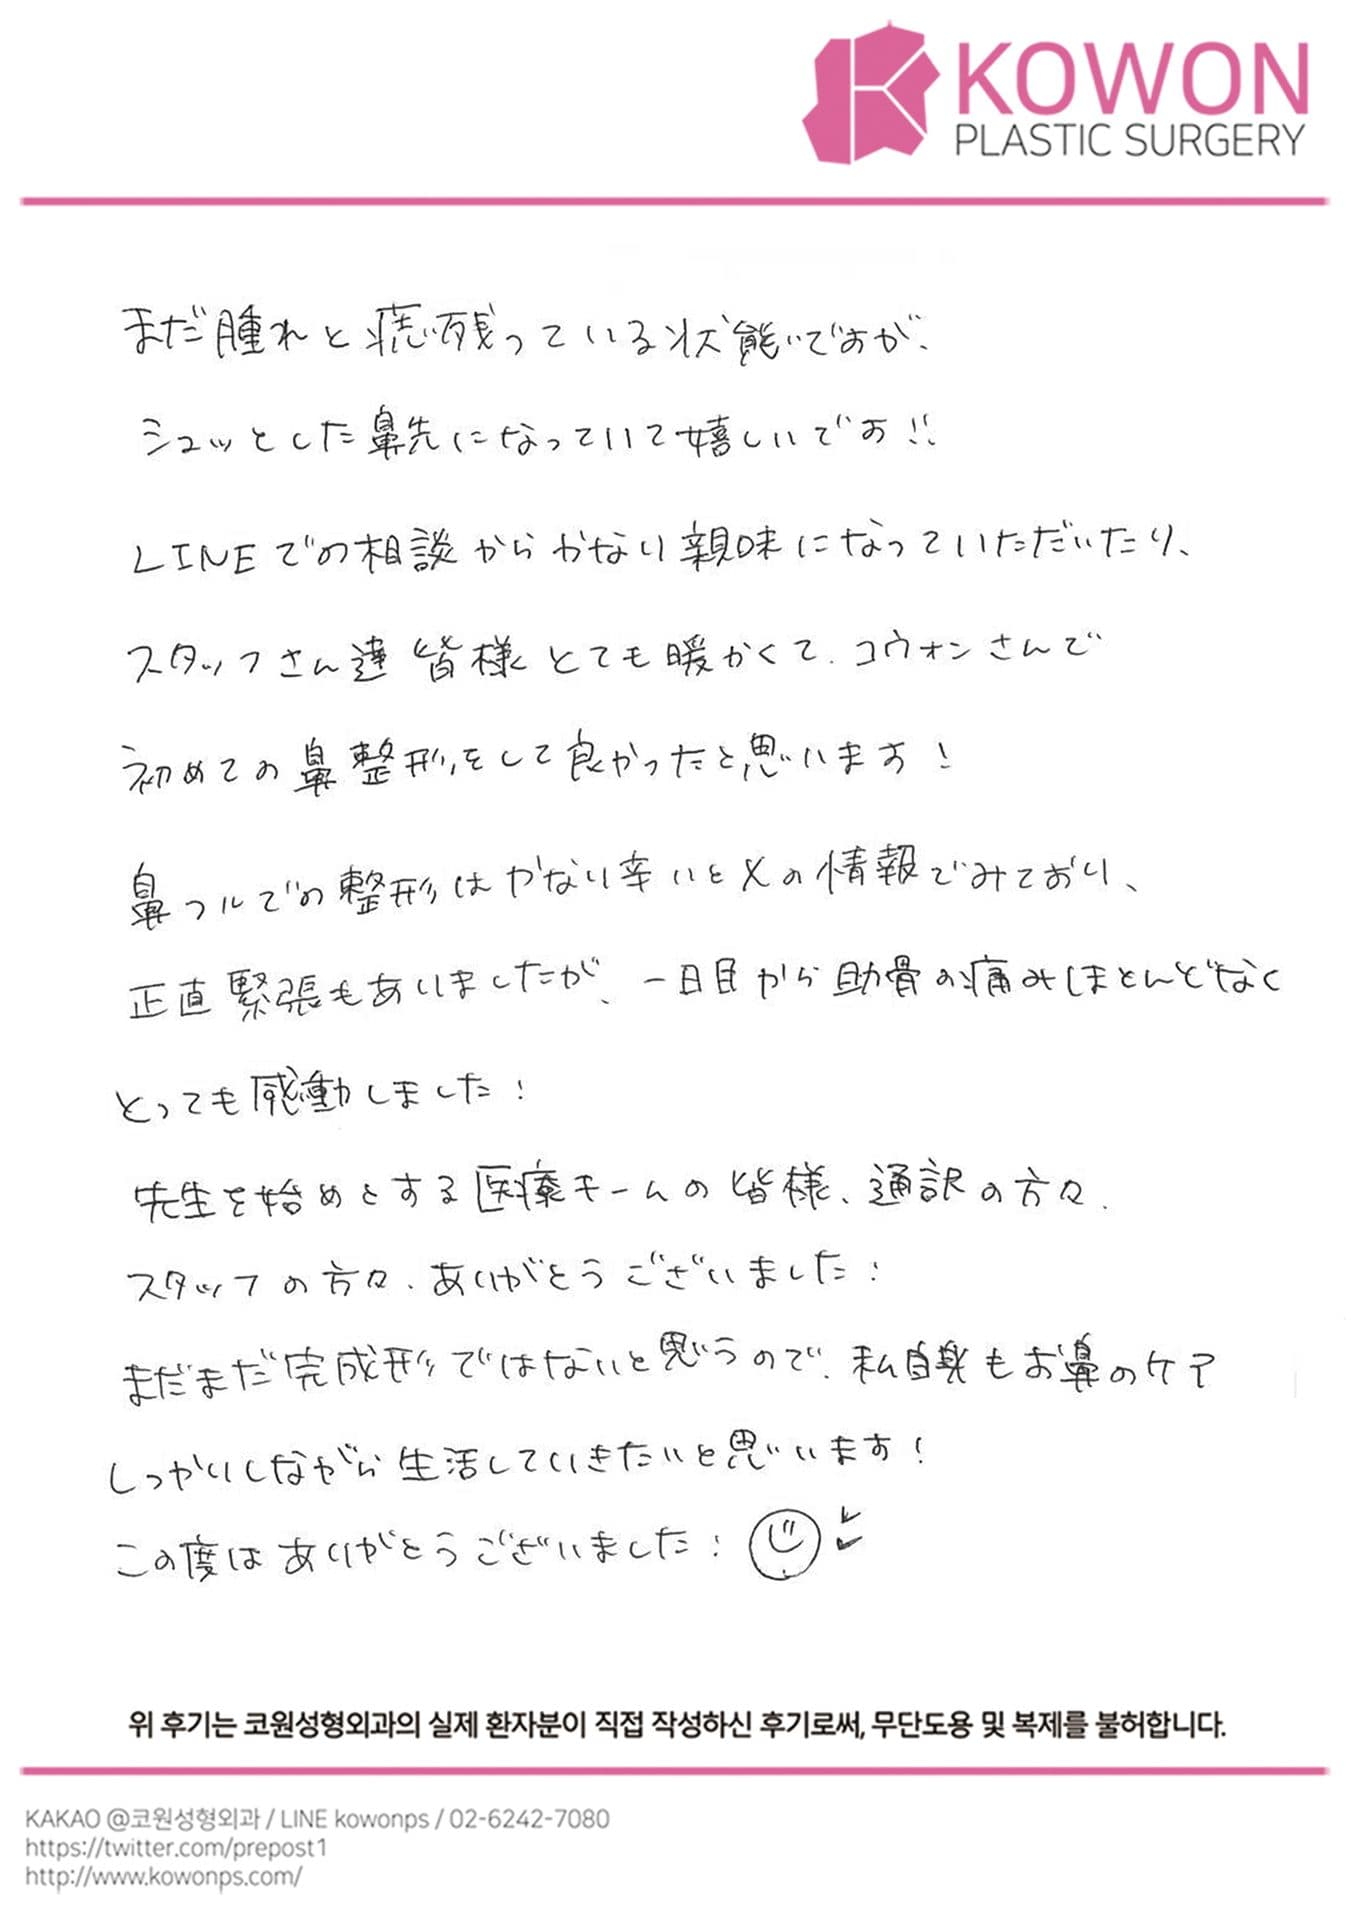 KOWON
PLASTIC SURGERY
まだ腫れと痣が残っている状態ですが、
シュッとした鼻先になっていて嬉しいです!!
LINEでの相談からかなり親味になっていただいたり、
スタッフさん達皆様とても暖かくて、コウォンさんで
初めての鼻整形をして良かったと思います!
鼻フルでの整形はかなり辛いとXの情報でみており、
正直緊張もありましたが、一日目から助骨の痛みほとんどなく
とっても感動しました!
先生を始めとする医療チームの皆様、通訳の方々、
スタッフの方々、ありがとうございました!
まだまだ完成形ではないと思うので、私自身もお鼻のケア
しっかりしながら生活していきたいと思います!
この度はありがとうございました!
위 후기는 코원성형외과의 실제 환자분이 직접 작성하신 후기로써, 무단도용 및 복제를 불허합니다.
KAKAO @코원성형외과 / LINE kowonps / 02-6242-7080
https://twitter.com/prepost1
http://www.kowonps.com/